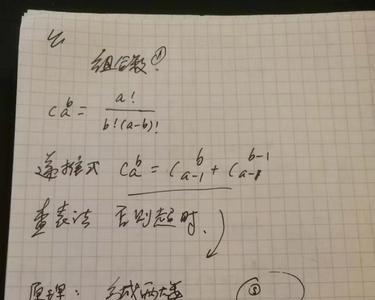 组合数 ①
C_a^b = a! / b!(a-b)!
递推式 C_a^b = C_{a-1}^b + C_{a-1}^{b-1}
查表法 否则超时.
原理:
③